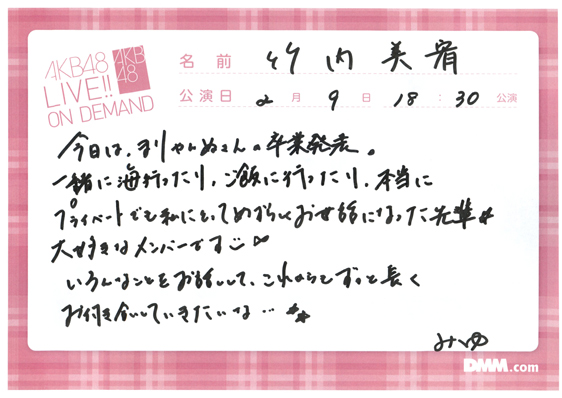 AKB48
LIVE!!
ON DEMAND
AKB
48
名前 竹内美宥
公演日 2月9日 18:30公演
今日は、まりやんぬさんの卒業発表。
一緒に海行ったり、ご飯に行ったり、本当に
プライベートでも私にとってめずらしくお世話になった先輩
大好きなメンバーです
いろんなことをお話しして、これからもずっと長く
お付き合いしていきたいな…
みゆ
DMM.com